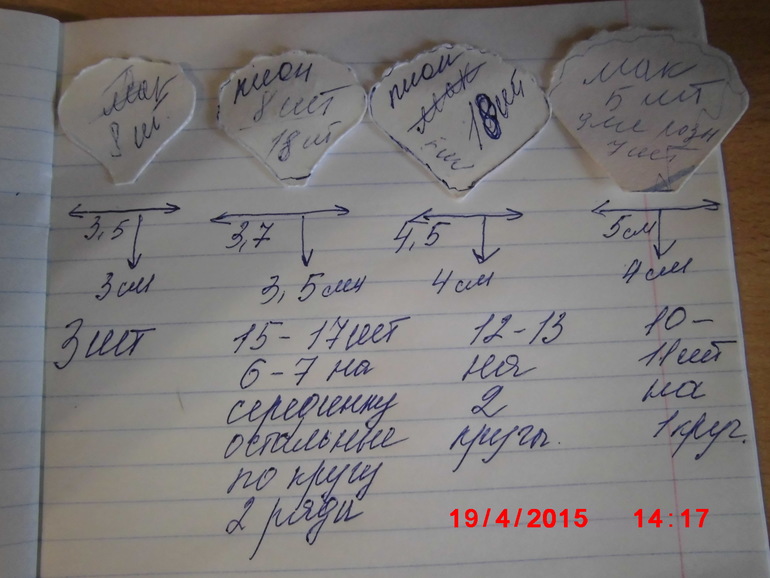 Мак
8 шт.
пион
8 шт
18 шт
пион
Мак
18 шт
мак
5 шт
7 шт
3,5
3 см
3 шт
3,7
3,5 см
15-17 шт
6-7 на
серединку
остальные
по кругу
2 ряда
4,5
4 см
12-13
на
2
круга.
5 см
4 см
10-
11 шт
на
1 круг.
19/4/2015 14:17